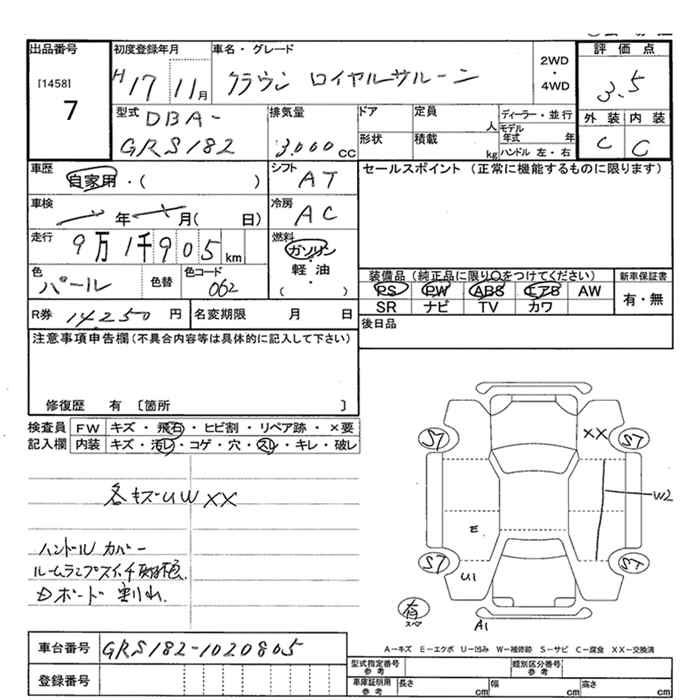 出品番号 初度登録年月 車名・グレード 2WD・4WD 評価点
[1458] 7 H17 11月 クラウン ロイヤルサルーン 3.5
型式 DBA-GRS182 排気量 3,000cc ドア 定員 人 ディーラー・並行 外装 内装
形状 積載 kg モデル年式 年 ハンドル 左・右 C C
車歴 自家用・( ) シフト AT セールスポイント (正常に機能するものに限ります)
車検 年 月( 日) 冷房 AC
走行 9万1千905km 燃料 ガソリン・軽油・( )
色 パール 色替 色コード 062 装備品(純正品に限り○をつけてください) 新車保証書
PS PW ABS エアB AW 有・無
SR ナビ TV カワ
R券 14,250円 名変期限 月 日 後日品
注意事項申告欄(不具合内容等は具体的に記入して下さい)
修復歴 有 [箇所 ]
検査員 FW キズ・飛石・ヒビ割・リペア跡・×要
記入欄 内装 キズ・汚レ・コゲ・穴・スレ・キレ・破レ
各キズUW XX
ハンドルカバー
ルームランプスイッチ
Dボード割れ
XX
ST ST
W2
E
ST ST
U1
有
A1
車台番号 GRS182-1020805
A-キズ E-エクボ U-凹み W-補修跡 S-サビ C-腐食 XX-交換済
登録番号 型式指定番号 参考 類別区分番号 参考
車庫証明用 参考 長さ cm 幅 cm 高さ cm